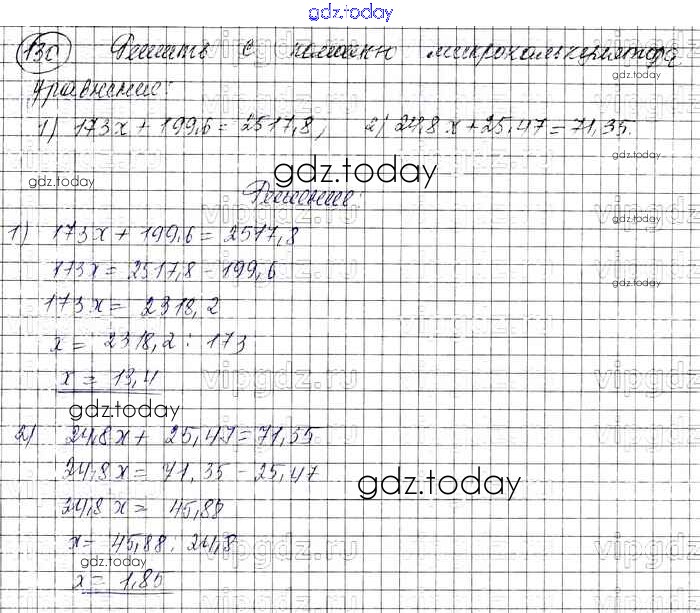 gdz.today
130 Решить с помощью микрокалькулятора
gdz.today
уравнение:
1) 173x + 199,6 = 2517,8, 2) 24,8x + 25,47 = 71,35.
gdz.today
gdz.today
Решение:
gdz.today
1) 173x + 199,6 = 2517,8
173x = 2517,8 - 199,6
gdz.today
173x = 2318,2
x = 2318,2 : 173
vipgdz.ru
x = 13,4
gdz.today
2) 24,8x + 25,47 = 71,35
24,8x = 71,35 - 25,47
gdz.today
24,8x = 45,88
x = 45,88 : 24,8
vipgdz.ru
gdz.today
x = 1,85